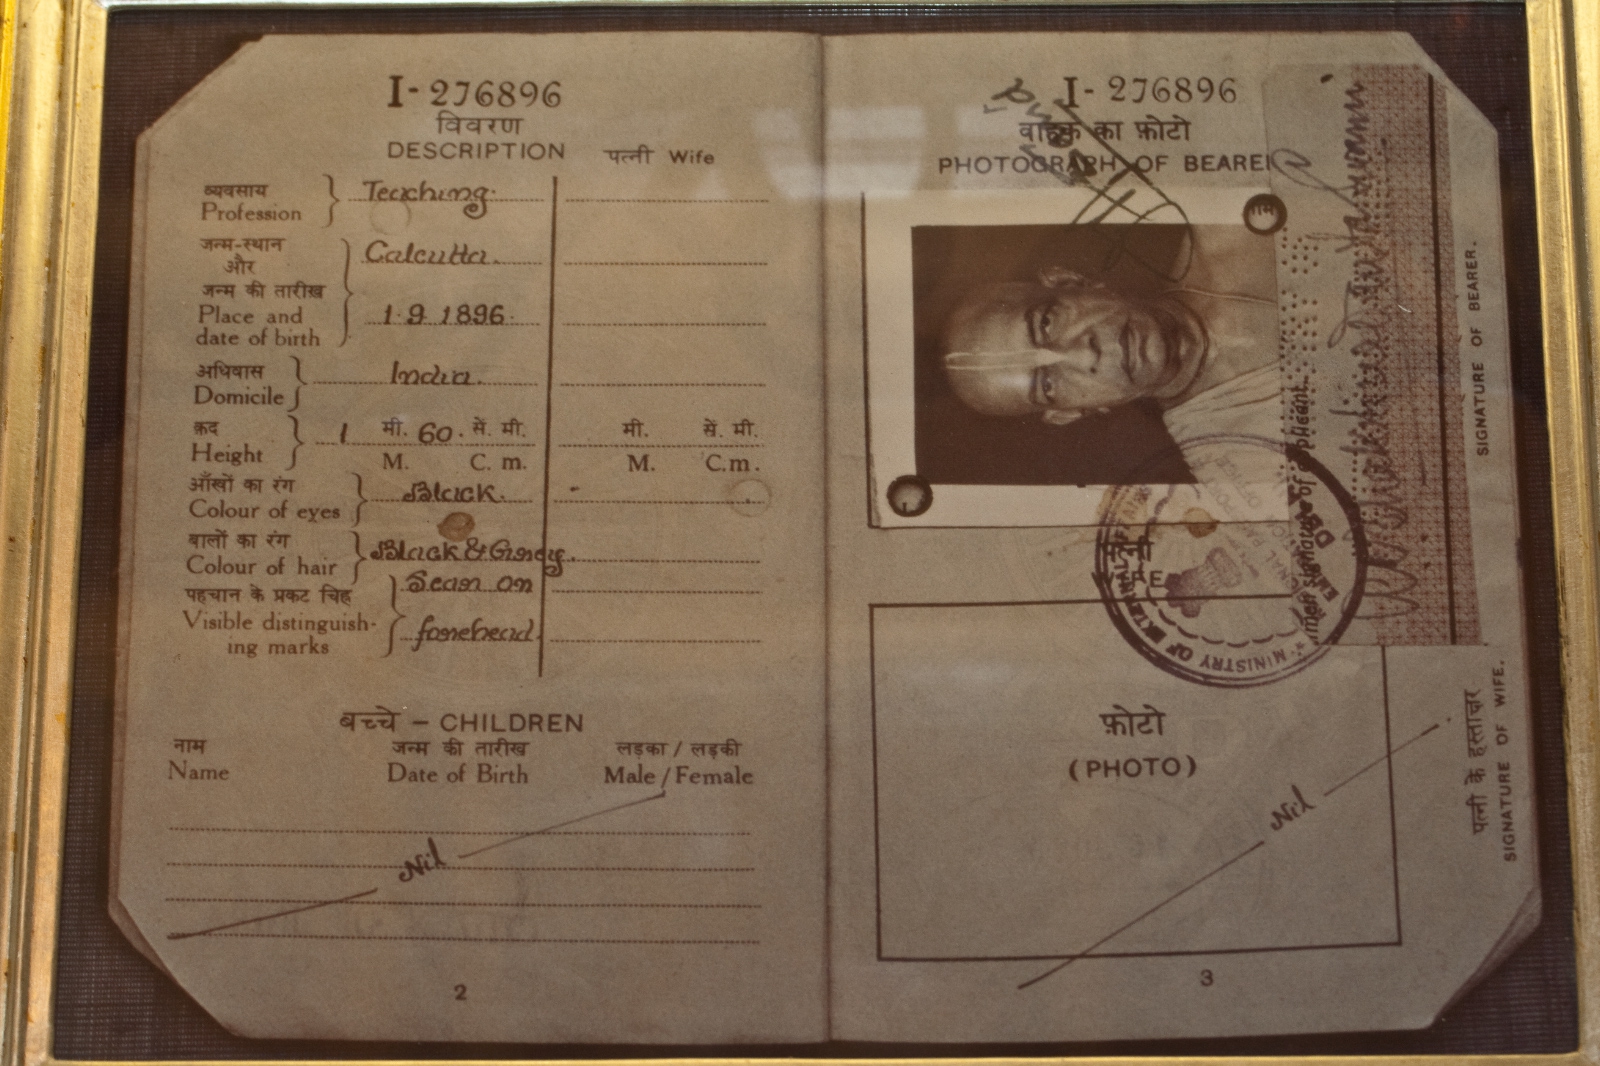 I-276896
विवरण
DESCRIPTION
पत्नी Wife
व्यवसाय
Profession
Teaching.
जन्म-स्थान
और
जन्म की तारीख़
Place and
date of birth
Calcutta.
1.9.1896.
अधिवास
Domicile
India.
क़द
Height
1 मी. 60. सें. मी.
M. C. m.
मी. सें. मी.
M. C.m.
आँखों का रंग
Colour of eyes
Black.
बालों का रंग
Colour of hair
Black & Grey.
पहचान के प्रकट चिह्न
Visible distinguish-
ing marks
Scar on
forehead.
बच्चे - CHILDREN
नाम
Name
जन्म की तारीख़
Date of Birth
लड़का / लड़की
Male / Female
Nil
2
I- 276896
वाहक का फ़ोटो
PHOTOGRAPH OF BEARER
SIGNATURE OF BEARER.
MINISTRY OF EXTERNAL AFFAIRS
फ़ोटो
(PHOTO)
Nil
पत्नी के हस्ताक्षर
SIGNATURE OF WIFE.
3